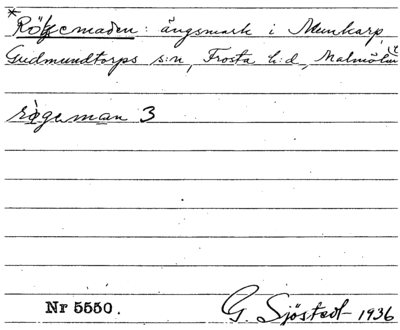 *Rögemaden: ängsmark i Munkarp,
Gudmundtorps s:n, Frosta h:d, Malmöhus
rögeman 3
Nr 5550.
G. Sjöstedt 1936